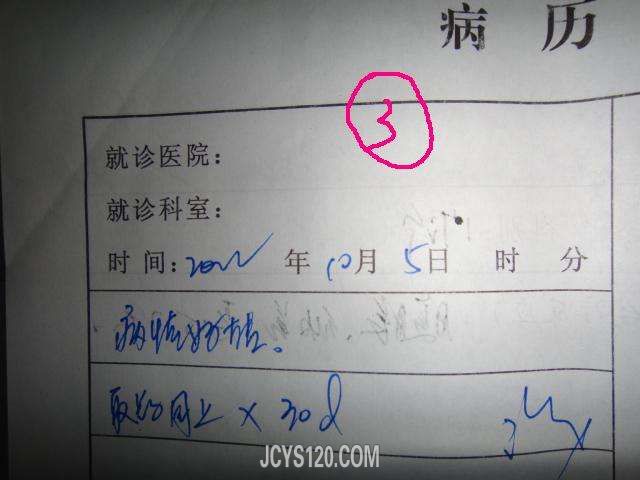 病 历
3
就诊医院：
就诊科室：
时间：2022年10月5日 时 分
病情好转。
取药同上 x 30d
JCYS120.COM